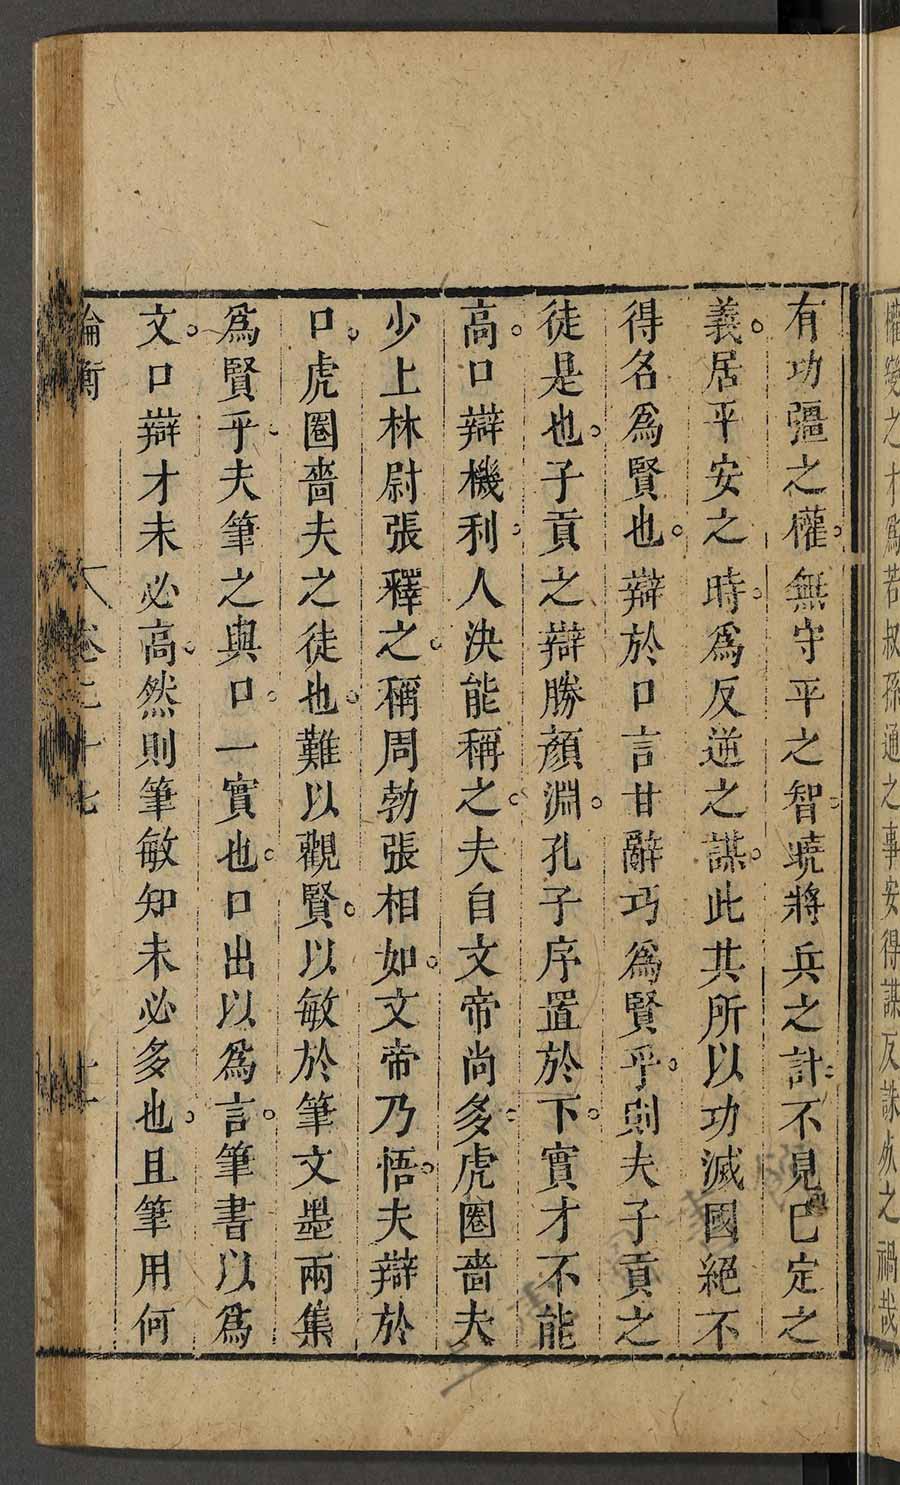 權變之才爲若叔孫通之事安得謀反誅死之禍哉
有功彊之權無守平之智曉將兵之計不見已定之
義居平安之時爲反逆之謀此其所以功滅國絕不
得名爲賢也辯於口言甘辭巧爲賢乎則夫子貢之
徒是也子貢之辯勝顏淵孔子序置於下實才不能
高口辯機利人決能稱之夫自文帝尚多虎圈嗇夫
少上林尉張釋之稱周勃張相如文帝乃悟夫辯於
口虎圈嗇夫之徒也難以觀賢以敏於筆文墨兩集
爲賢乎夫筆之與口一實也口出以爲言筆書以爲
文口辯才未必高然則筆敏知未必多也且筆用何
論衡 卷二十七